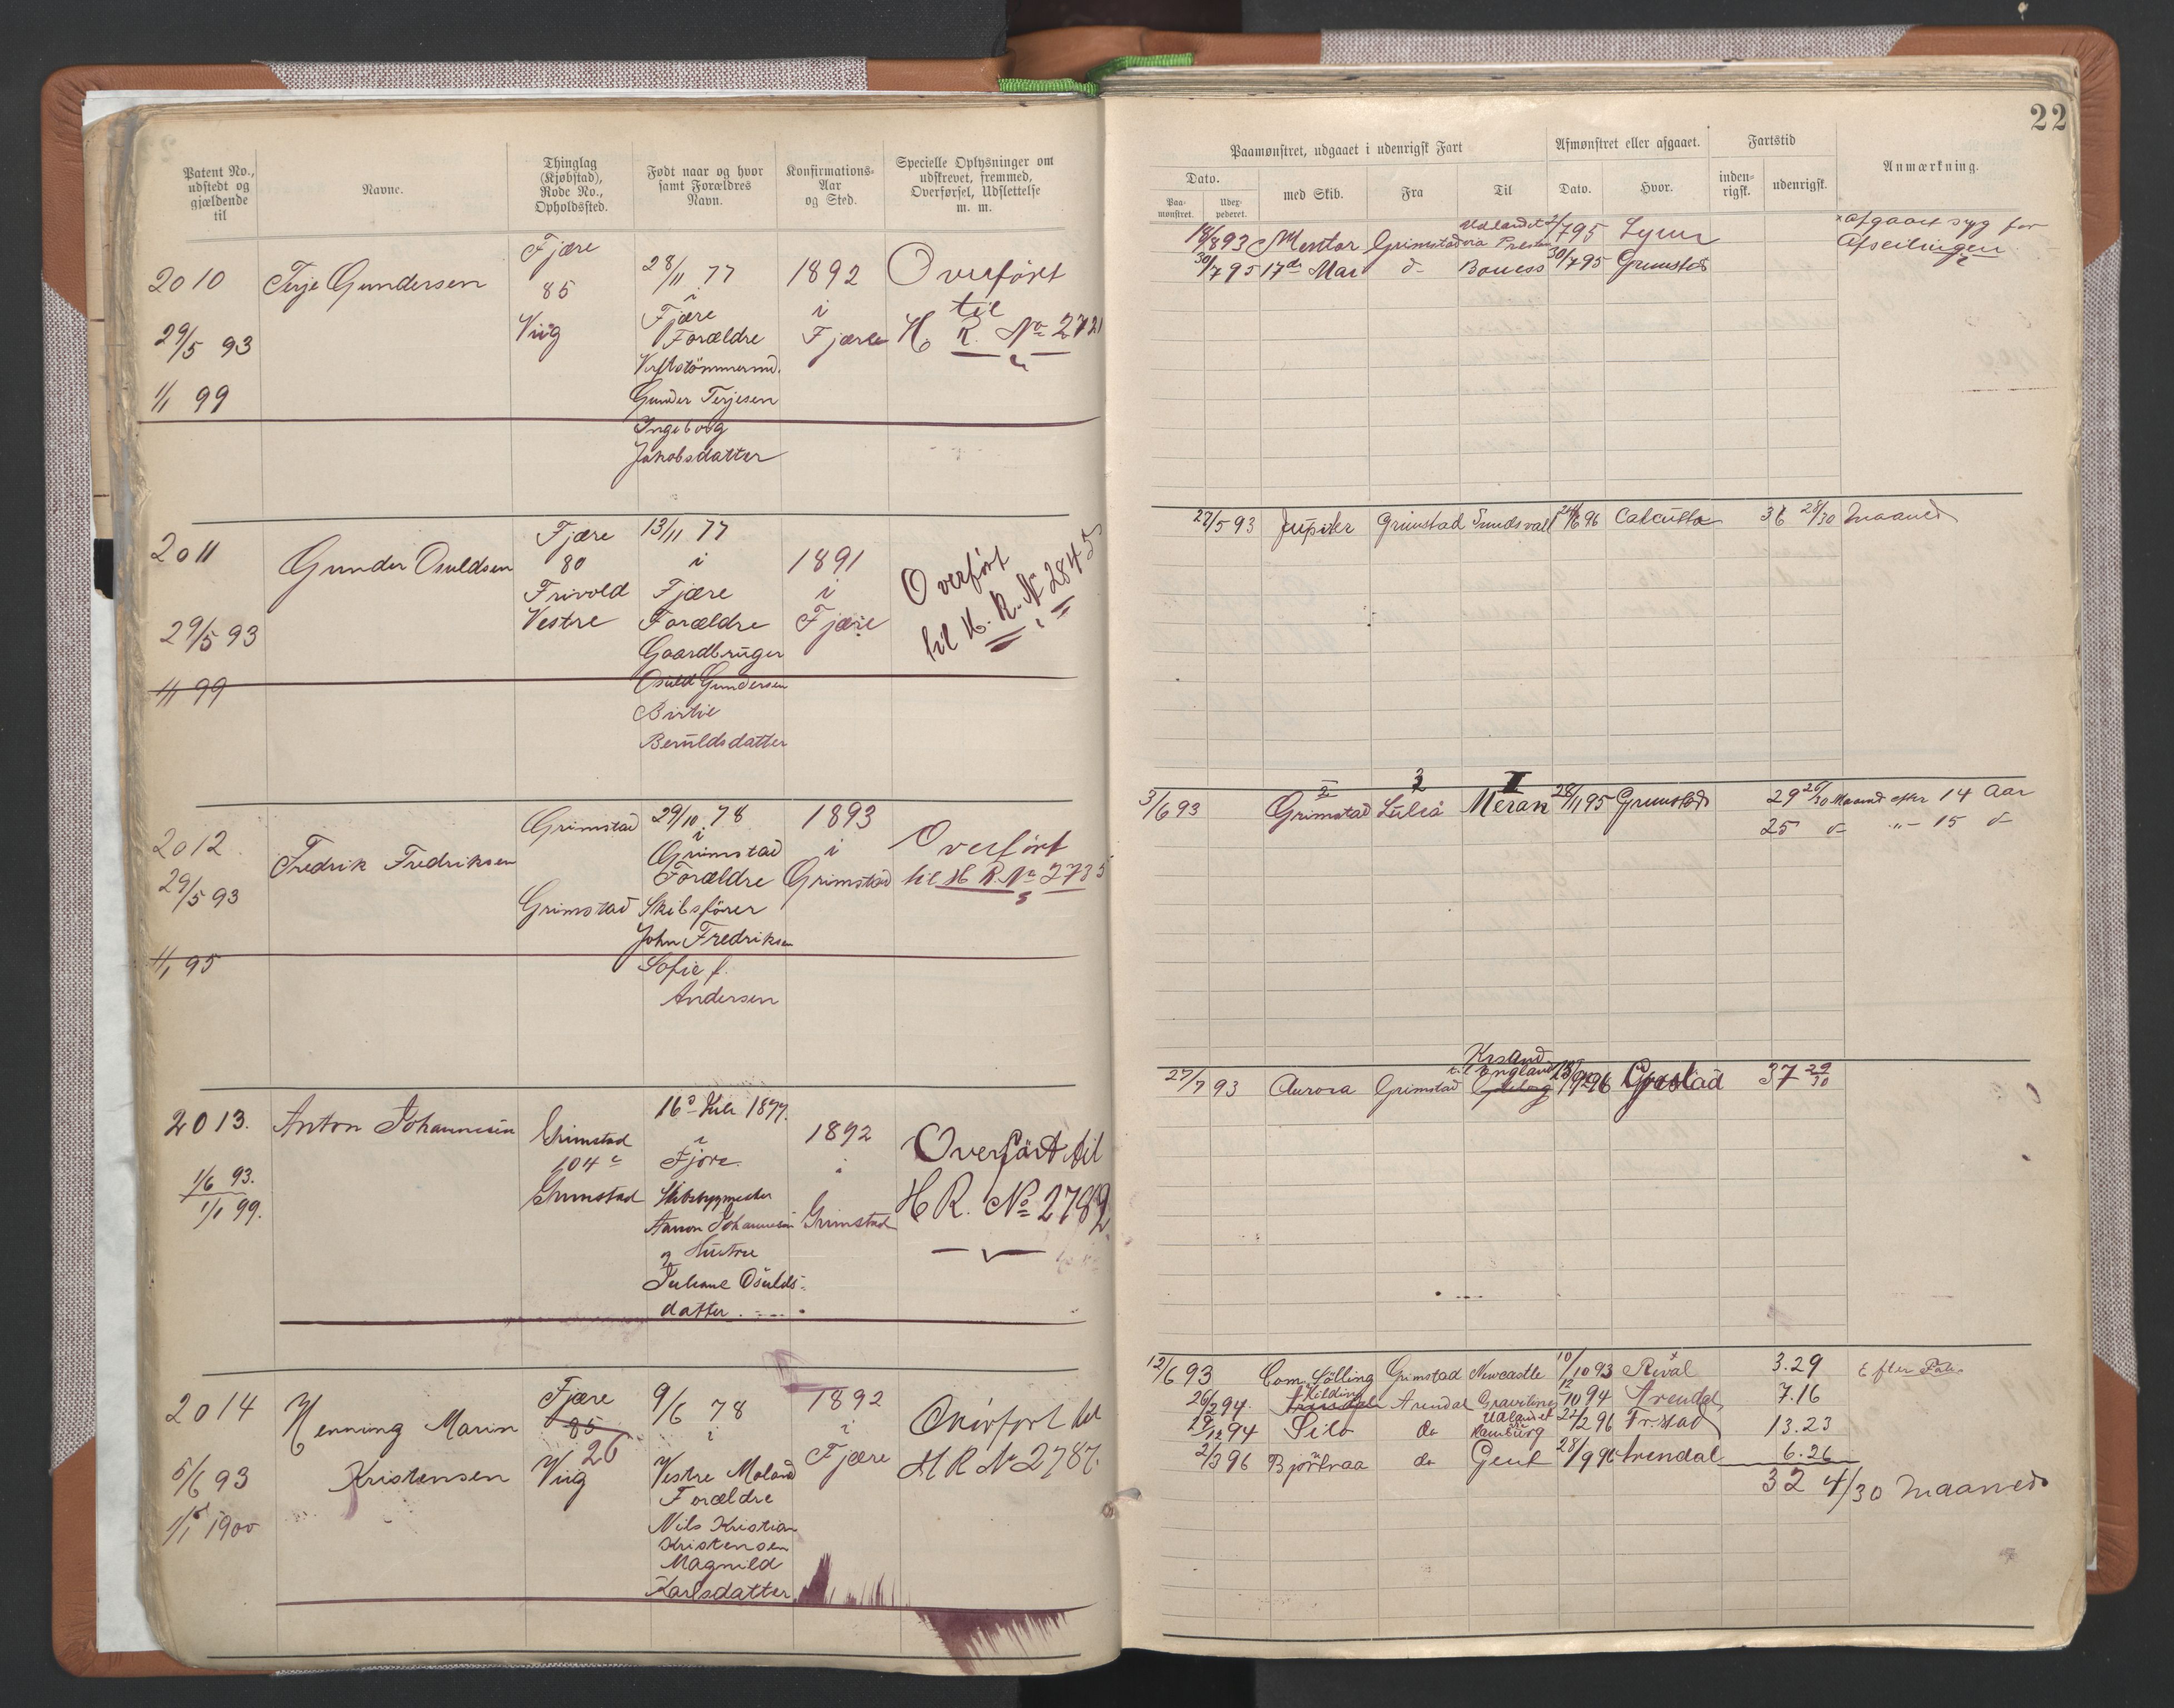 22
Patent No.,
udstedt og
gjældende
til
Navne.
Thinglag
(Kjøbstad),
Rode No.,
Opholdssted.
Født naar og hvor
samt Forældres
Navn.
Konfirmations-
Aar
og Sted.
Specielle Oplysninger om
udskrevet, fremmed,
Overførsel, Udslettelse
m. m.
Paamønstret, udgaaet i udenrigsk Fart
Dato.
Paa-
mønstret.
Udex-
pederet.
med Skib.
Fra
Til
Afmønstret eller afgaaet.
Dato.
Hvor.
Fartstid
inden-
rigsk.
udenrigsk.
Anmærkning.
2010
29/5 93
1/1 99
Terje Gundersen
Fjære
85
Viig
28/11 77
i
Fjære
Forældre
Gunder Terjesen
Ingeborg
Jakobsdatter
1892
i
Fjære
Overført
til
H. R. No 2721
18/8 93 Mentor Grimstad Udlandet
7 95
afgaaet syg før
Afseilingen
30/7 95 17de Mai do 30/7 95 Grimstad
2011
29/5 93
1/1 99
Gunder Osuldsen
Fjære
80
Frivold
Vestre
13/11 77
i
Fjære
Forældre
Gaardbruger
Osuld Gundersen
Birtie
Beruldsdatter
1891
i
Fjære
Overført
til H. R. No 2845
27/5 93 Jupiter Grimstad Sundsvall 96 Calcutta 36 28/30 Maaned
2012
29/5 93
1/1 95
Fredrik Fredriksen
Grimstad
Grimstad
29/10 78
i
Grimstad
Forældre
Skibsfører
John Fredriksen
Sofie f.
Andersen
1893
i
Grimstad
Overført
til H R. No 2735
3/6 93 Grimstad Luleå Meran 28/11 95 Grimstad 29 26/30 Maaned efter 14 Aar
25 do " 15 do
2013.
1/6 93.
1/1 99.
Anton Johannesen
Grimstad
104 c
Grimstad
1877.
i
Fjære.
Skibsbygmester
Aanon Johannesen
og Hustru
Juliane Osulds-
datter
1892
i
Grimstad
Overført til
H R. No 2782
27/7 93 Aurora Grimstad Krsand
til England
96 Grstad 37 29/30
2014
5/6 93
1/1 1900
Henning Marin
Kristensen
Fjære
85
26
Viig
9/6 78
i
Vestre Moland
Forældre
Nils Kristian
Kristensen
Magnild
Karlsdatter
1892
i
Fjære
Overført til
H R No 2787.
12/6 93 Com. Sölling Grimstad Newcastle 10/10 93 Reval 3.29
26/2 94. Kilding Arendal Gravelines 12/10 94 Arendal 7.16
12 94 Silo do Udlandet
Hamburg 22/2 96 Fr.stad 13.23
2/3 96 Bjørkraa do Gent 28/9 96 Arendal 6.26
32 4/30 Maaned